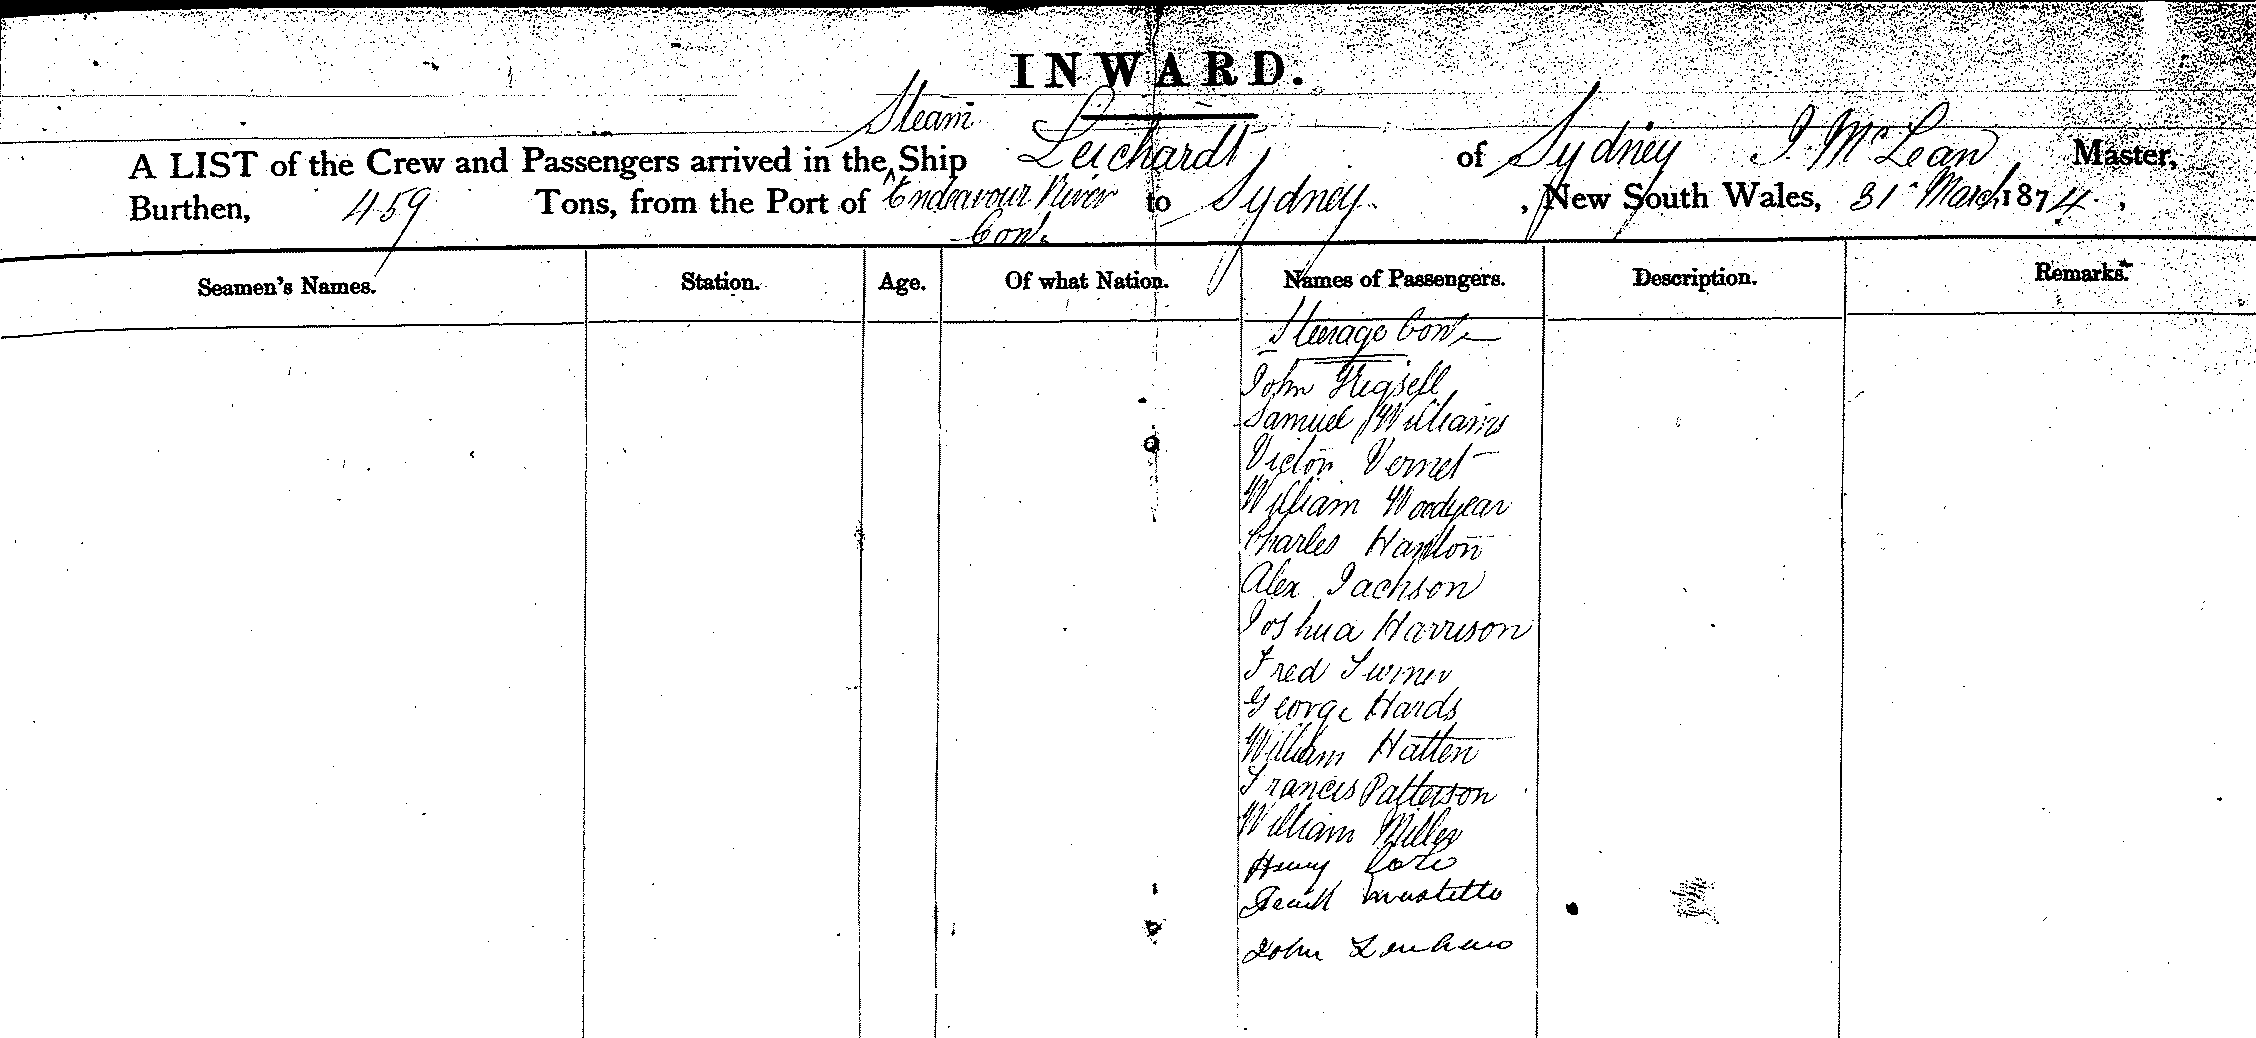 INWARD.
Steam
A LIST of the Crew and Passengers arrived in the Ship Leichardt of Sydney J. McLean Master,
Burthen, 459 Tons, from the Port of Endeavour River to Sydney, New South Wales, 31st March 1874.
Cont.
Seamen's Names. Station. Age. Of what Nation. Names of Passengers. Description. Remarks.
Steerage Cont.
John
Samuel Williams
Victor Vernet
William Woodyear
Charles Hanlon
Alex Jackson
Joshua Harrison
Fred Turner
George Hards
William Hatten
Francis Patterson
William Miller
Henry
John